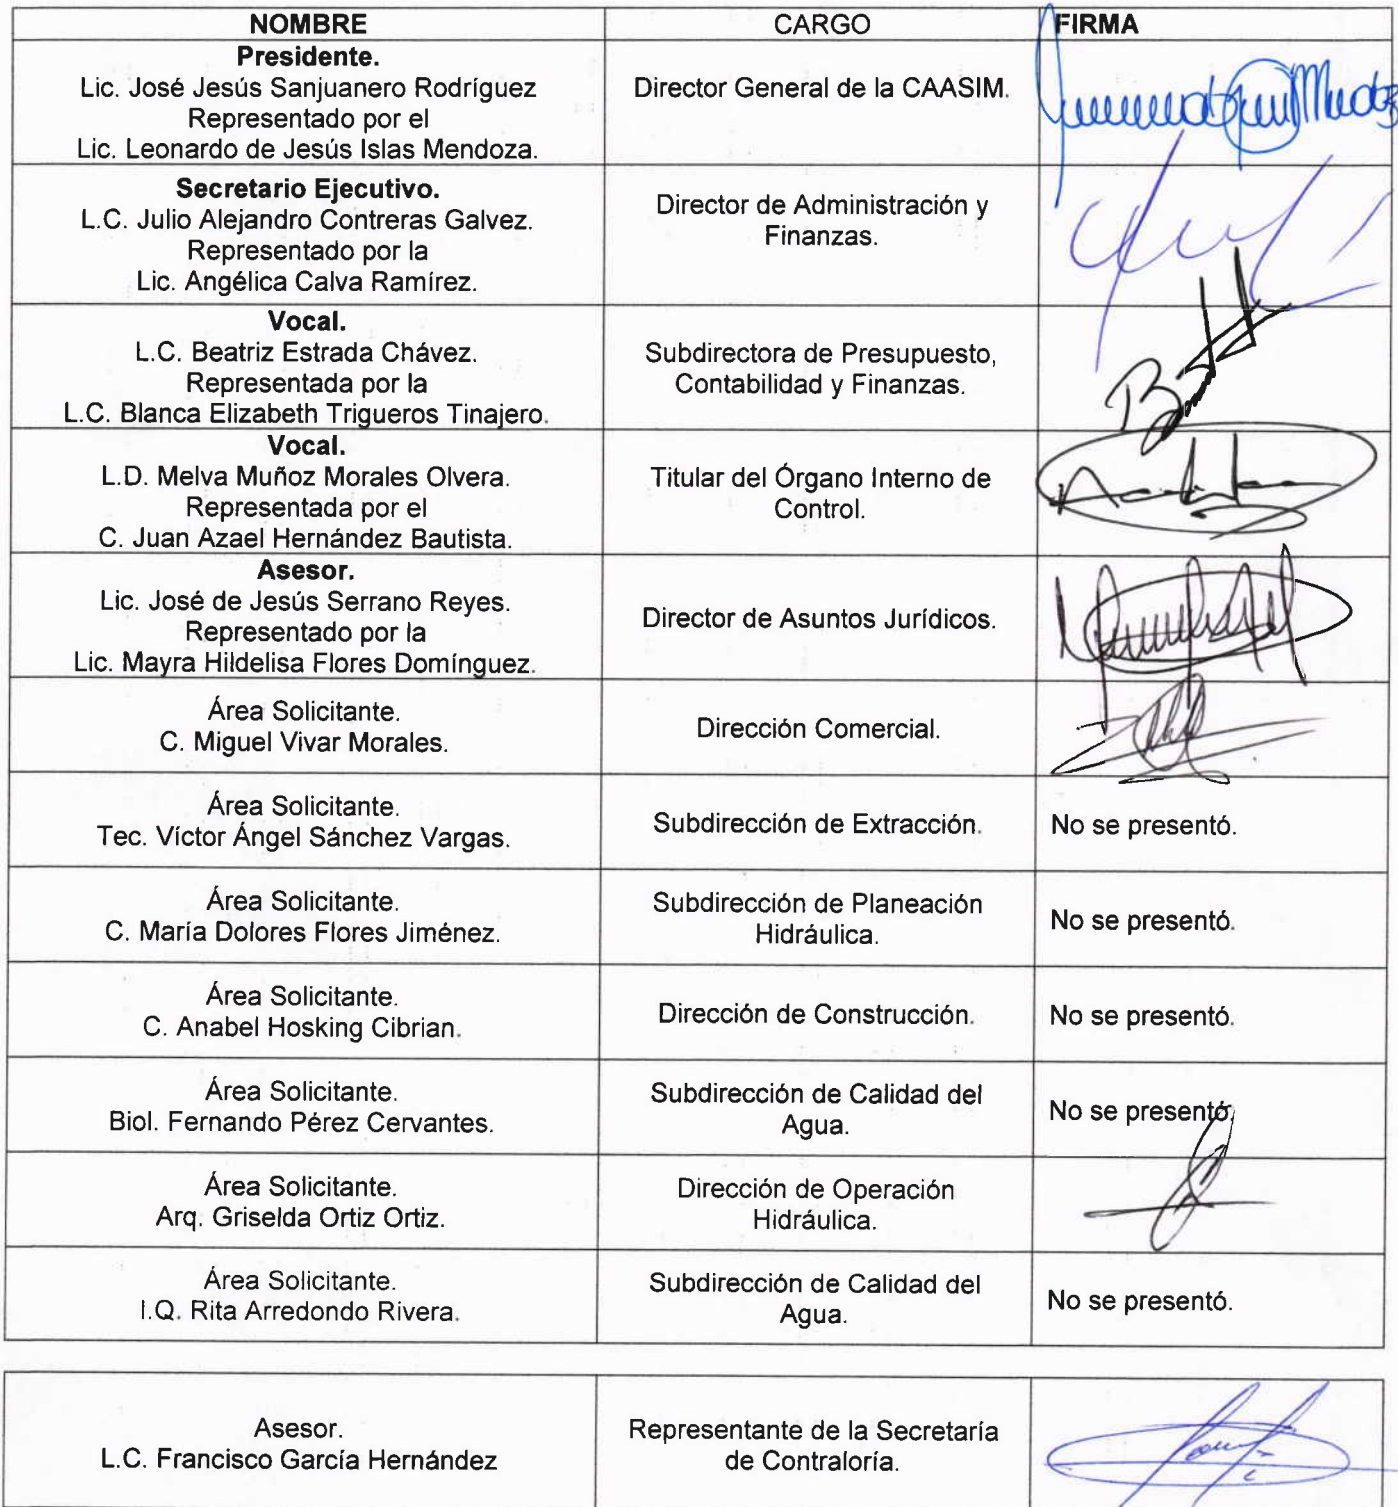 NOMBRE CARGO FIRMA
Presidente.
Lic. José Jesús Sanjuanero Rodríguez
Representado por el
Lic. Leonardo de Jesús Islas Mendoza.
Director General de la CAASIM.
Secretario Ejecutivo.
L.C. Julio Alejandro Contreras Galvez.
Representado por la
Lic. Angélica Calva Ramírez.
Director de Administración y
Finanzas.
Vocal.
L.C. Beatriz Estrada Chávez.
Representada por la
L.C. Blanca Elizabeth Trigueros Tinajero.
Subdirectora de Presupuesto,
Contabilidad y Finanzas.
Vocal.
L.D. Melva Muñoz Morales Olvera.
Representada por el
C. Juan Azael Hernández Bautista.
Titular del Órgano Interno de
Control.
Asesor.
Lic. José de Jesús Serrano Reyes.
Representado por la
Lic. Mayra Hildelisa Flores Domínguez.
Director de Asuntos Jurídicos.
Área Solicitante.
C. Miguel Vivar Morales.
Dirección Comercial.
Área Solicitante.
Tec. Víctor Ángel Sánchez Vargas.
Subdirección de Extracción.
No se presentó.
Área Solicitante.
C. María Dolores Flores Jiménez.
Subdirección de Planeación
Hidráulica.
No se presentó.
Área Solicitante.
C. Anabel Hosking Cibrian.
Dirección de Construcción.
No se presentó.
Área Solicitante.
Biol. Fernando Pérez Cervantes.
Subdirección de Calidad del
Agua.
No se presentó.
Área Solicitante.
Arq. Griselda Ortiz Ortiz.
Dirección de Operación
Hidráulica.
Área Solicitante.
I.Q. Rita Arredondo Rivera.
Subdirección de Calidad del
Agua.
No se presentó.
Asesor.
L.C. Francisco García Hernández
Representante de la Secretaría
de Contraloría.